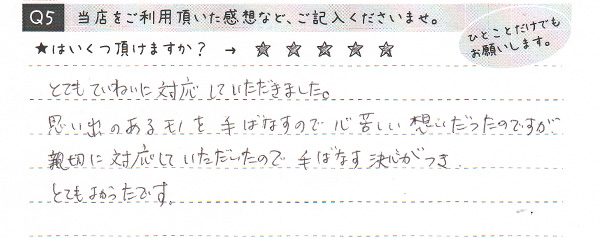 Q5 当店をご利用頂いた感想など、ご記入くださいませ。
★はいくつ頂けますか？ → ☆ ☆ ☆ ☆ ☆
ひとことだけでも
お願いします。
とてもていねいに対応していただきました。
思い出のあるモノを手ばなすので心苦しい想いだったのですが
親切に対応していただいたので手ばなす決心がつき
とてもよかったです。